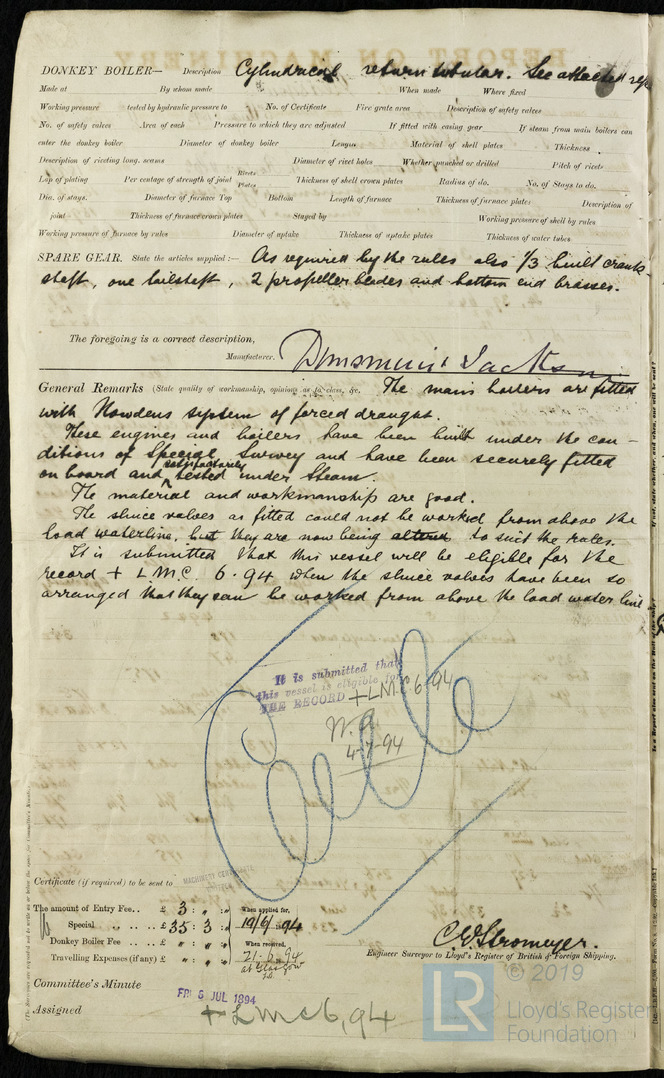 DONKEY BOILER— Description Cylindrical return tubular. See attached rep
Made at By whom made When made Where fixed
Working pressure tested by hydraulic pressure to No. of Certificate Fire grate area Description of safety valves
No. of safety valves Area of each Pressure to which they are adjusted If fitted with easing gear If steam from main boilers can
enter the donkey boiler Diameter of donkey boiler Length Material of shell plates Thickness
Description of riveting long. seams Diameter of rivet holes Whether punched or drilled Pitch of rivets
Lap of plating Per centage of strength of joint Rivets Plates Thickness of shell crown plates Radius of do. No. of Stays to do.
Dia. of stays. Diameter of furnace Top Bottom Length of furnace Thickness of furnace plates Description of
joint Thickness of furnace crown plates Stayed by Working pressure of shell by rules
Working pressure of furnace by rules Diameter of uptake Thickness of uptake plates Thickness of water tubes
SPARE GEAR. State the articles supplied:— As required by the rules also 1/3 built crank-
shaft, one tailshaft, 2 propeller blades and bottom end brasses.
The foregoing is a correct description,
Manufacturer. Dunsmuir & Jackson
General Remarks (State quality of workmanship, opinions as to class, &c. The main boilers are fitted
with Howdens system of forced draught.
These engines and boilers have been built under the con-
ditions of Special Survey and have been securely fitted
on board and satisfactorily tested under steam.
The material and workmanship are good.
The sluice valves as fitted could not be worked from above the
load waterline, but they are now being altered to suit the rules.
It is submitted that this vessel will be eligible for the
record + L.M.C. 6.94 when the sluice valves have been so
arranged that they can be worked from above the load water line
It is submitted that
this vessel is eligible for
THE RECORD + LMC 6.94
4-7-94
Certificate (if required) to be sent to
The amount of Entry Fee.. £ 3 : " : " When applied for,
Special .. .. £ 35 : 3 : " 19/6/94
Donkey Boiler Fee £ " : " : " When received,
Travelling Expenses (if any) £ " : " : " 21-6-94
at Glasgow
C. E. Stromeyer.
Engineer Surveyor to Lloyd's Register of British & Foreign Shipping.
Committee's Minute FRI 6 JUL 1894
Assigned + LMC 6,94
© 2019
LR Lloyd's Register
Foundation